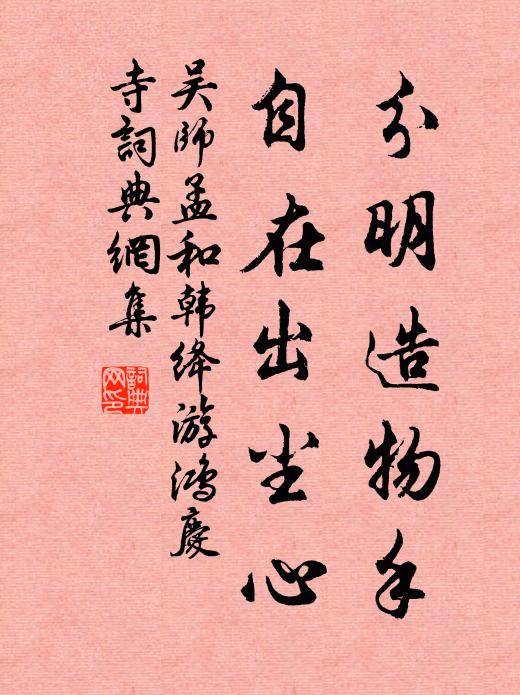 分明造物手
自在出尘心
吴师孟和韩绛游鸿庆
寺詞典網集
詞典
网印